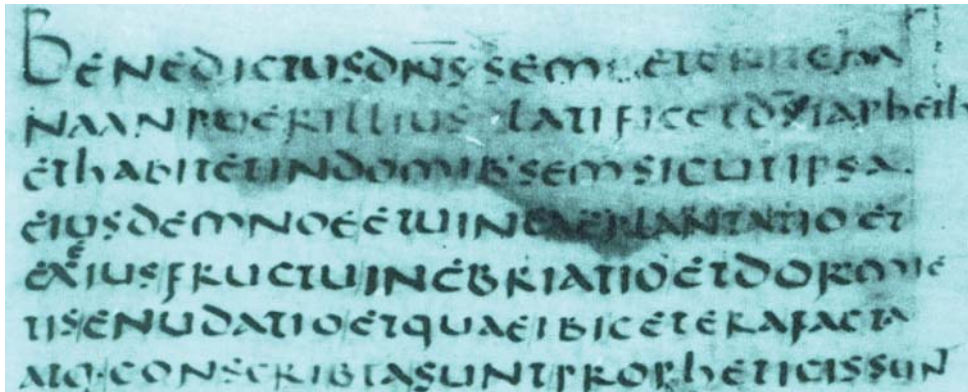 BENEDICTUSDN̅SSEM ETERIT
NAANPUERILLIUS LATIFICETD̅S̅IAPHETH
ETHABITETINDOMIB·SEMSICUTIPSA·
EIUSDEMNOEETUINEAEPLANTATIOET
EXEIUSFRUCTUINEBRIATIOETDORMIE
TISENUDATIOETQUAEIBICETERAFACTA
ATQ·CONSCRIBTASUNTPROPHETICISSUN